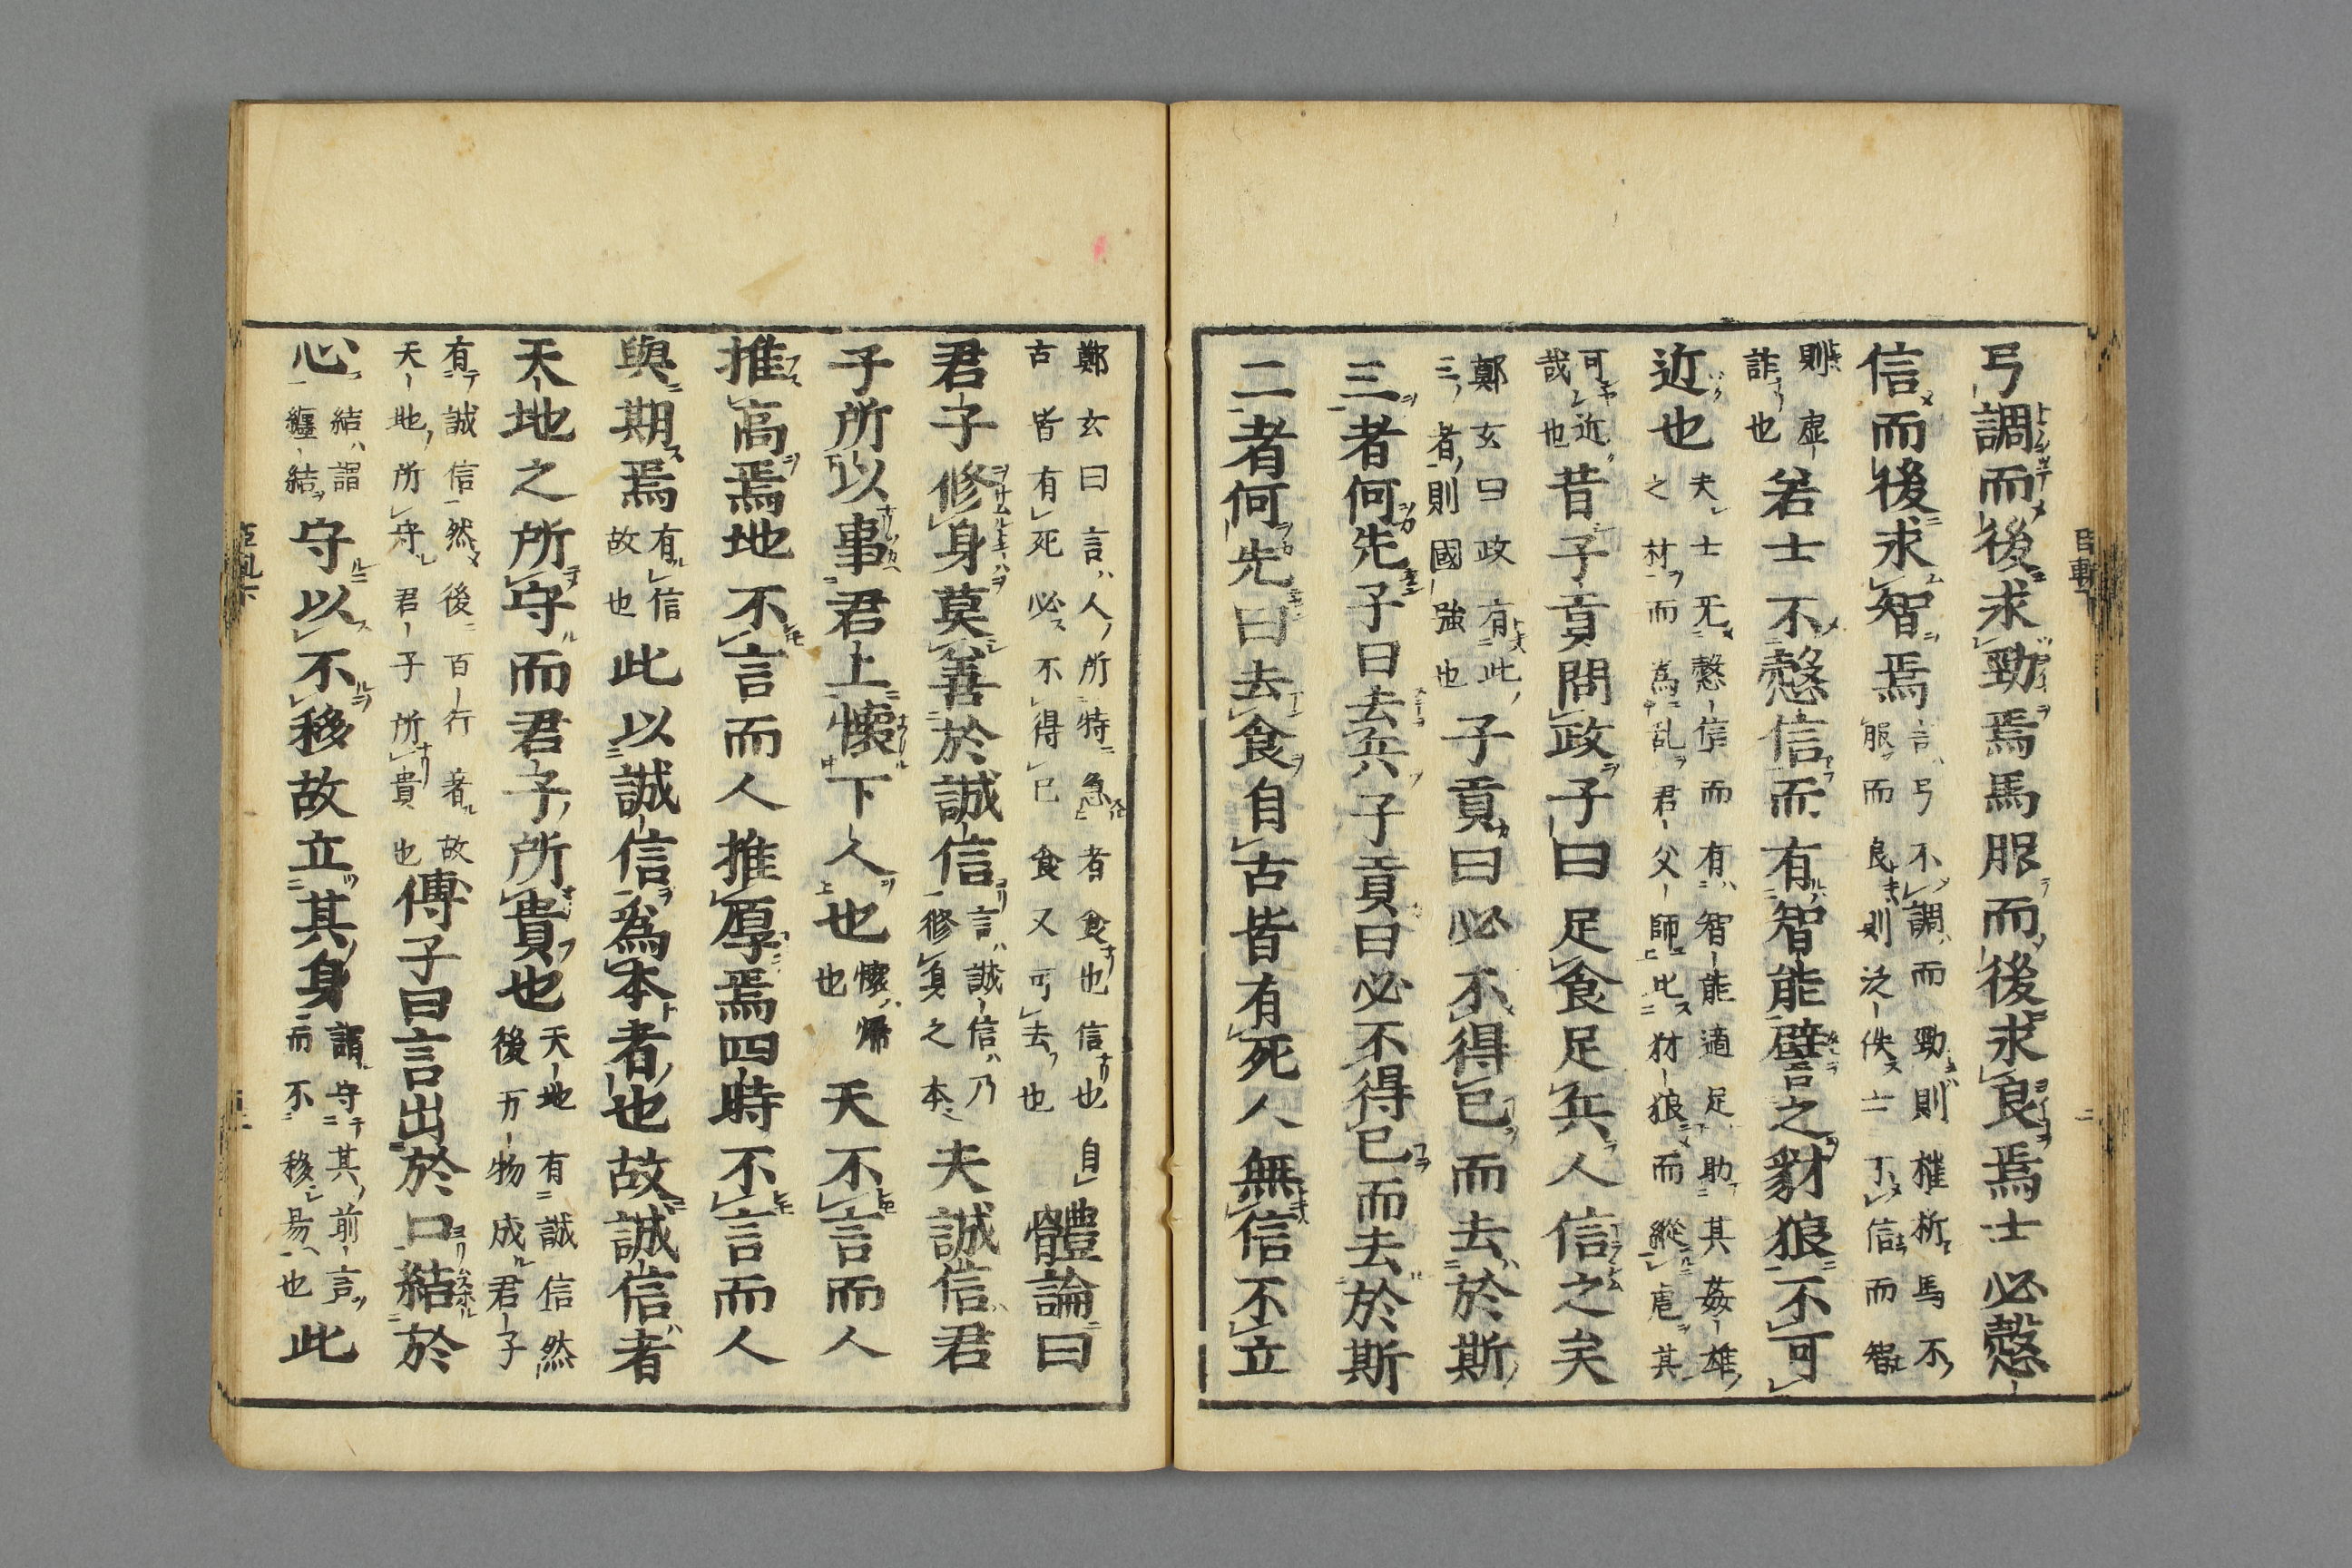 弓調而後求勁焉馬服而後求良焉士必愨
信而後求智焉言弓不調而勁則摧折馬不
服而良則泛佚士不信而智
則虛
詐也若士不愨信而有智能譬之豺狼不可
近也夫士无愨信而有智能適足助其姦雄
之材而為乱君父師比豺狼而縱虐其
可近
哉也昔子貢問政子曰足食足兵人信之矣
鄭玄曰政有此
三者則國強也子貢曰必不得已而去於斯
三者何先子曰去兵子貢曰必不得已而去於斯
二者何先曰去食自古皆有死人無信不立
鄭玄曰言人所特急者食也信也自
古皆有死必不得已食又可去也體論曰
君子修身莫善於誠信言誠信乃
修身之本夫誠信君
子所以事君上懷下人也懷歸
也天不言而人
推高焉地不言而人推厚焉四時不言而人
與期焉有信
故也此以誠信為本者也故誠信者
天地之所守而君子所貴也天地有誠信然
後万物成君子
有誠信然後百行者故
天地所守君子所貴也傳子曰言出於口結於
心結謂
纏結守以不移故立其身謂守其前言
而不移易也此